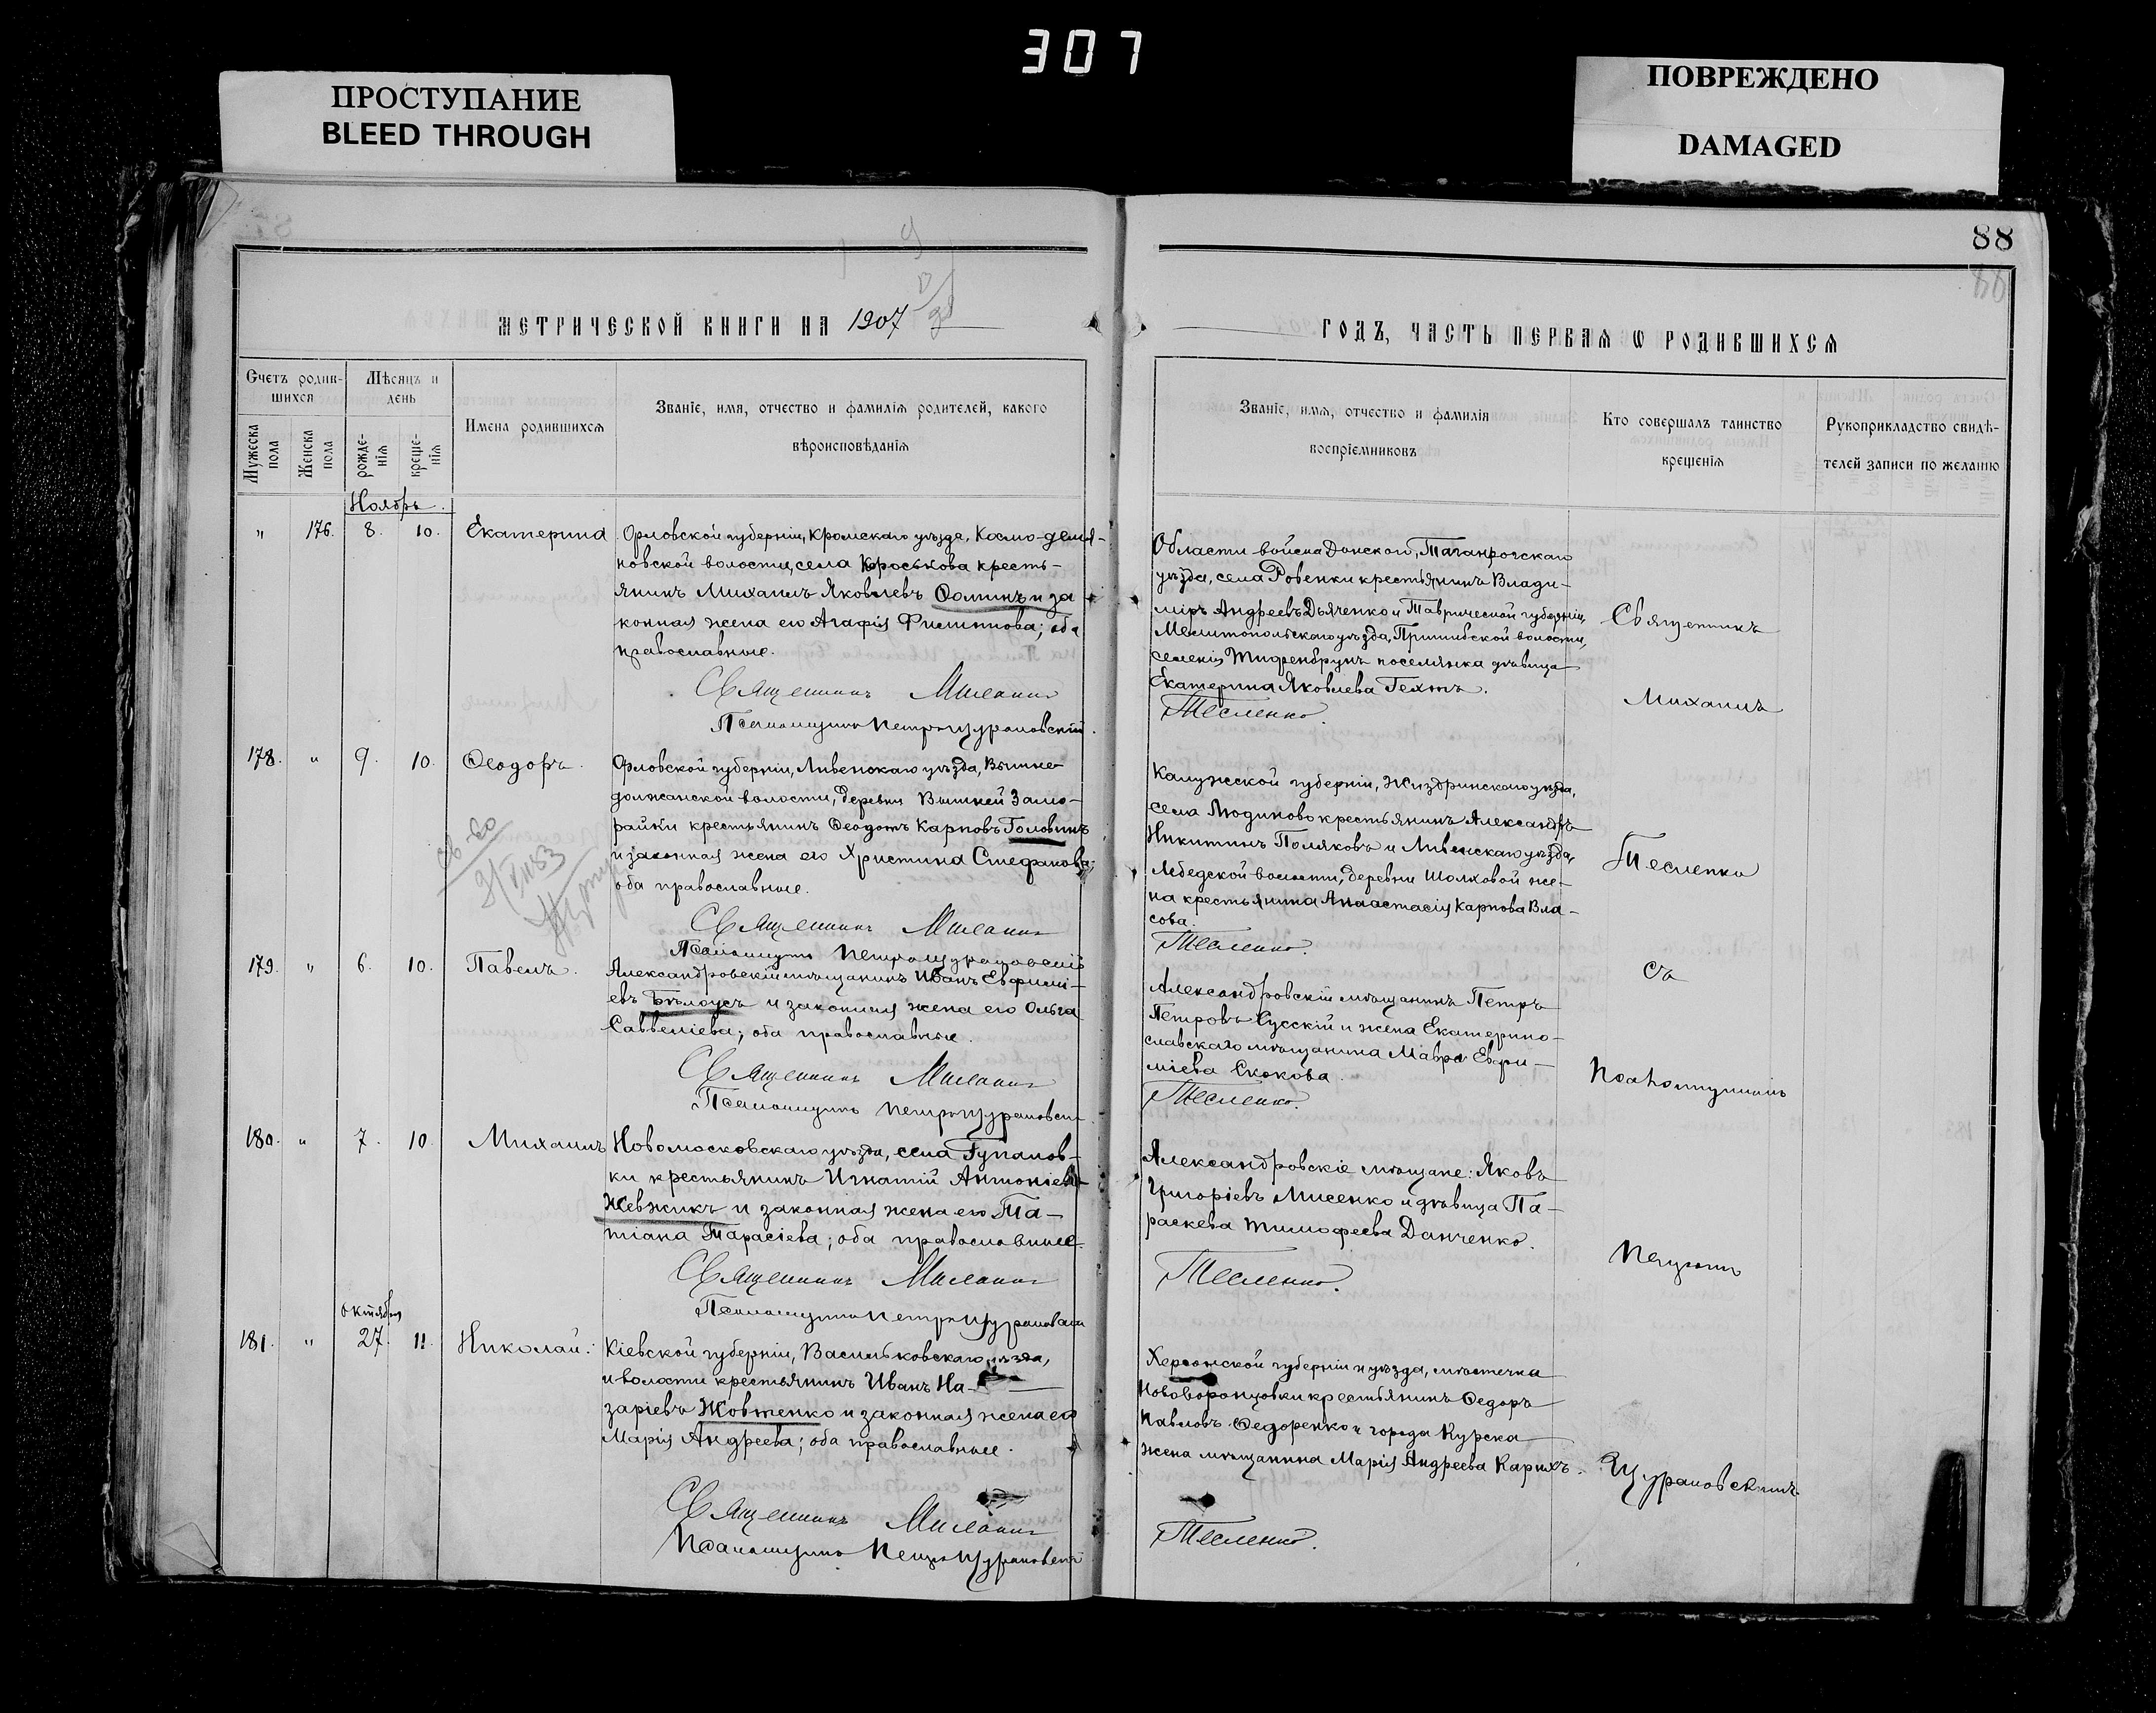 307
ПРОСТУПАНИЕ
BLEED THROUGH
ПОВРЕЖДЕНО
DAMAGED
88
МЕТРИЧЕСКОЙ КНИГИ НА 1907
ГОДЪ, ЧАСТЬ ПЕРВАЯ Ѡ РОДИВШИХСЯ
Счетъ родив-
шихся
Мѣсяцъ и
день
Мужеска
пола
Женска
пола
рожде-
нія
креще-
нія
Имена родившихся
Званіе, имя, отчество и фамилія родителей, какого
вѣроисповѣданія
Званіе, имя, отчество и фамилія
воспріемниковъ
Кто совершалъ таинство
крещенія
Рукоприкладство свидѣ-
телей записи по желанію
Ноябрь.
" 176. 8. 10. Екатерина
Орловской губерніи, Кромскаго уѣзда, Космо-демья-
новской волости, села Короськова кресть-
янинъ Михаилъ Яковлевъ Ѳоминъ и за-
конная жена его Агафія Филиппова; оба
православные.
Священникъ
Псаломщикъ Петръ Цурановскій.
Области войска Донского, Таганрогскаго
уѣзда, села Ровенки крестьянинъ Влади-
міръ Андреевъ Дьяченко и Таврической губерніи,
Мелитопольскаго уѣзда, Пришибской волости,
селенія Тифенбрунъ поселянка дѣвица
Екатерина Яковлева Гехтъ.
Тесленко.
Священникъ
Михаилъ
178. " 9. 10. Ѳеодоръ.
Орловской губерніи, Ливенскаго уѣзда, Вышне-
должанской волости, деревни Вышней Замо-
райки крестьянинъ Ѳеодотъ Карповъ Головинъ
и законная жена его Христина Стефанова;
оба православные.
Священникъ
Псаломщикъ Петръ Цурановскій
Калужской губерніи, Жиздринскаго уѣзда,
села Людиново крестьянинъ Александръ
Никитинъ Поляковъ и Ливенскаго уѣзда,
Лебедской волости, деревни Шолховой же-
на крестьянина Анастасія Карпова Вла-
сова.
Тесленко.
Тесленко
179. " 6. 10. Павелъ.
Александровскій мѣщанинъ Иванъ Евфимі-
евъ Бѣлоусъ и законная жена его Ольга
Саввеліева; оба православные.
Священникъ
Псаломщикъ Петръ Цурановскій
Александровскій мѣщанинъ Петръ
Петровъ Сусскій и жена Екатерино-
славскаго мѣщанина Мавра Евфи-
міева Скокова.
Тесленко.
съ
Псаломщикомъ
180. " 7. 10. Михаилъ
Новомосковскаго уѣзда, села Гупалов-
ки крестьянинъ Игнатій Антоніевъ
Жевжикъ и законная жена его Та-
тіана Тарасіева; оба православные.
Священникъ
Псаломщикъ Петръ Цурановскій
Александровскіе мѣщане: Яковъ
Григоріевъ Мисенко и дѣвица Па-
раскева Тимофеева Данченко.
Тесленко.
Петромъ
октября
181. " 27. 11. Николай.
Кіевской губерніи, Васильковскаго уѣзда,
и волости крестьянинъ Иванъ На-
заріевъ Жовтенко и законная жена его
Марія Андреева; оба православные.
Священникъ
Псаломщикъ Петръ Цурановскій
Херсонской губерніи и уѣзда, мѣстечка
Нововоронцовки крестьянинъ Ѳедоръ
Павловъ Ѳедоренко и города Курска
жена мѣщанина Марія Андреева Карихъ.
Тесленко.
Цурановскимъ